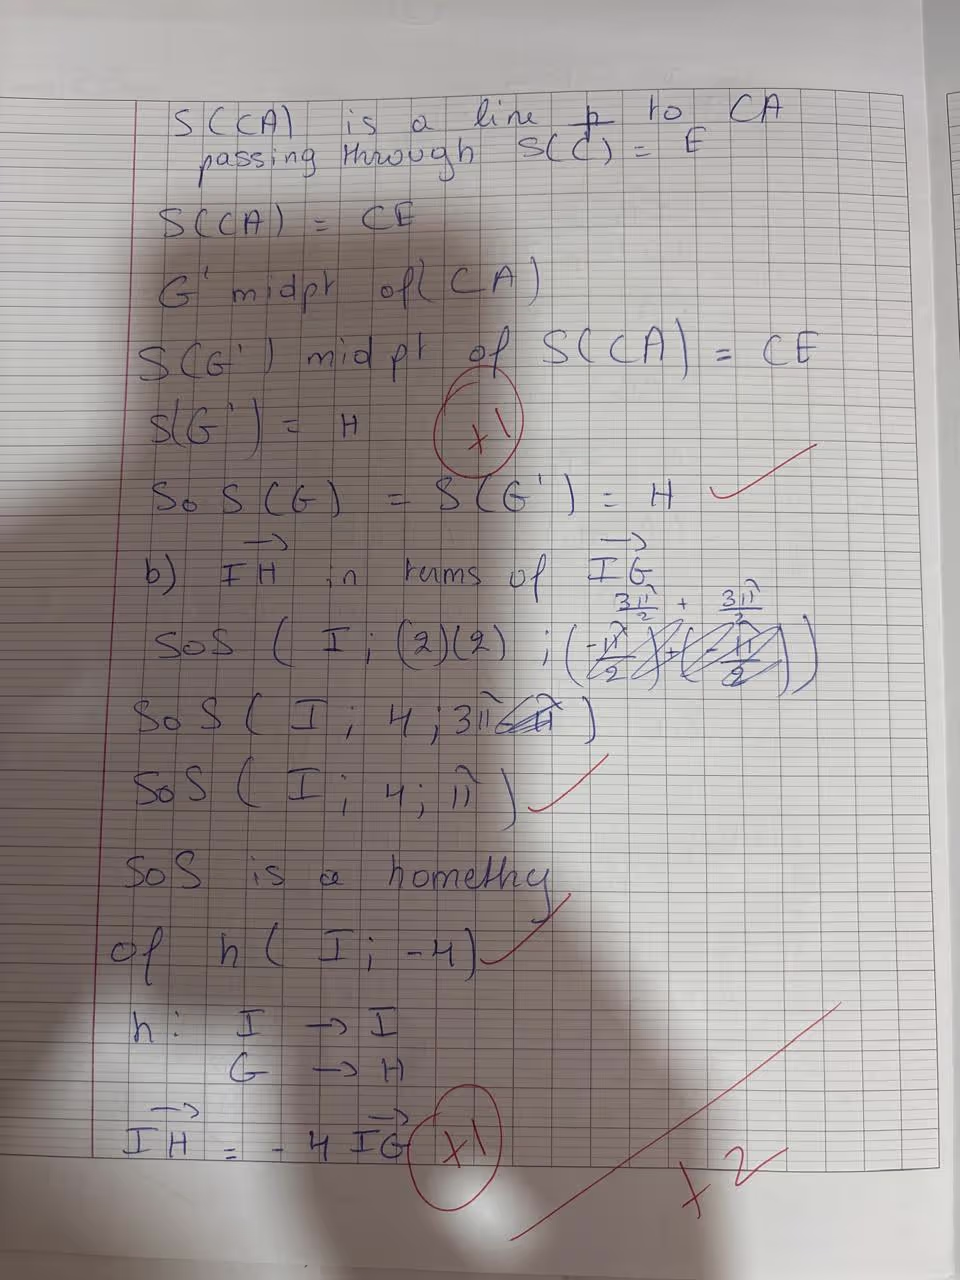 S(CA) is a line p to CA
passing through S(C) = E
S(CA) = CE
G' midpt of (CA)
S(G') midpt of S(CA) = CE
S(G') = H
+1
SoS(G) = S(G') = H
b) IH in terms of IG
3π/2 + 3π/2
SoS ( I ; (2)(2) ; (-π/2) + (-π/2) )
SoS ( I ; 4 ; 3π )
SoS ( I ; 4 ; π )
SoS is a homethy
of h ( I ; -4 )
h : I → I
G → H
IH = - 4 IG
+1
+2